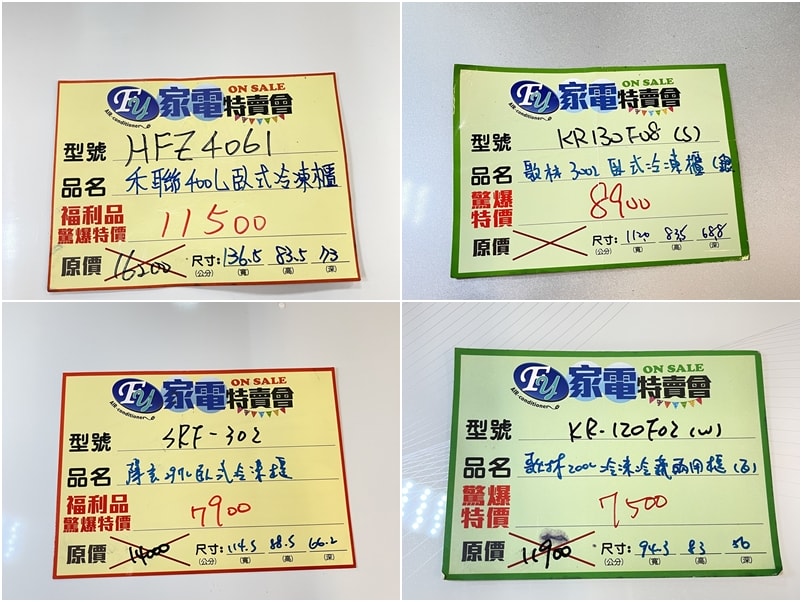 FY 家電特賣會 ON SALE
AIR-conditioner
型號 HFZ4061
品名 禾聯400L臥式冷凍櫃
福利品
驚爆特價 11500
原價 16500 尺寸:136.5 83.5 73
(公分) (寬) (高) (深)
FY 家電特賣會 ON SALE
AIR-conditioner
型號 KR130F08(S)
品名 歌林300L臥式冷凍櫃(銀
驚爆
特價 8900
原價 尺寸:112.0 83.5 68.8
(公分) (寬) (高) (深)
FY 家電特賣會 ON SALE
AIR-conditioner
型號 SRF-302
品名 297L臥式冷凍櫃
福利品
驚爆特價 7900
原價 14000 尺寸:114.5 88.5 66.2
(公分) (寬) (高) (深)
FY 家電特賣會 ON SALE
AIR-conditioner
型號 KR-120F02(W)
品名 歌林200L冷凍冷藏兩用櫃(白)
驚爆
特價 7500
原價 11900 尺寸:94.3 83 56
(公分) (寬) (高) (深)